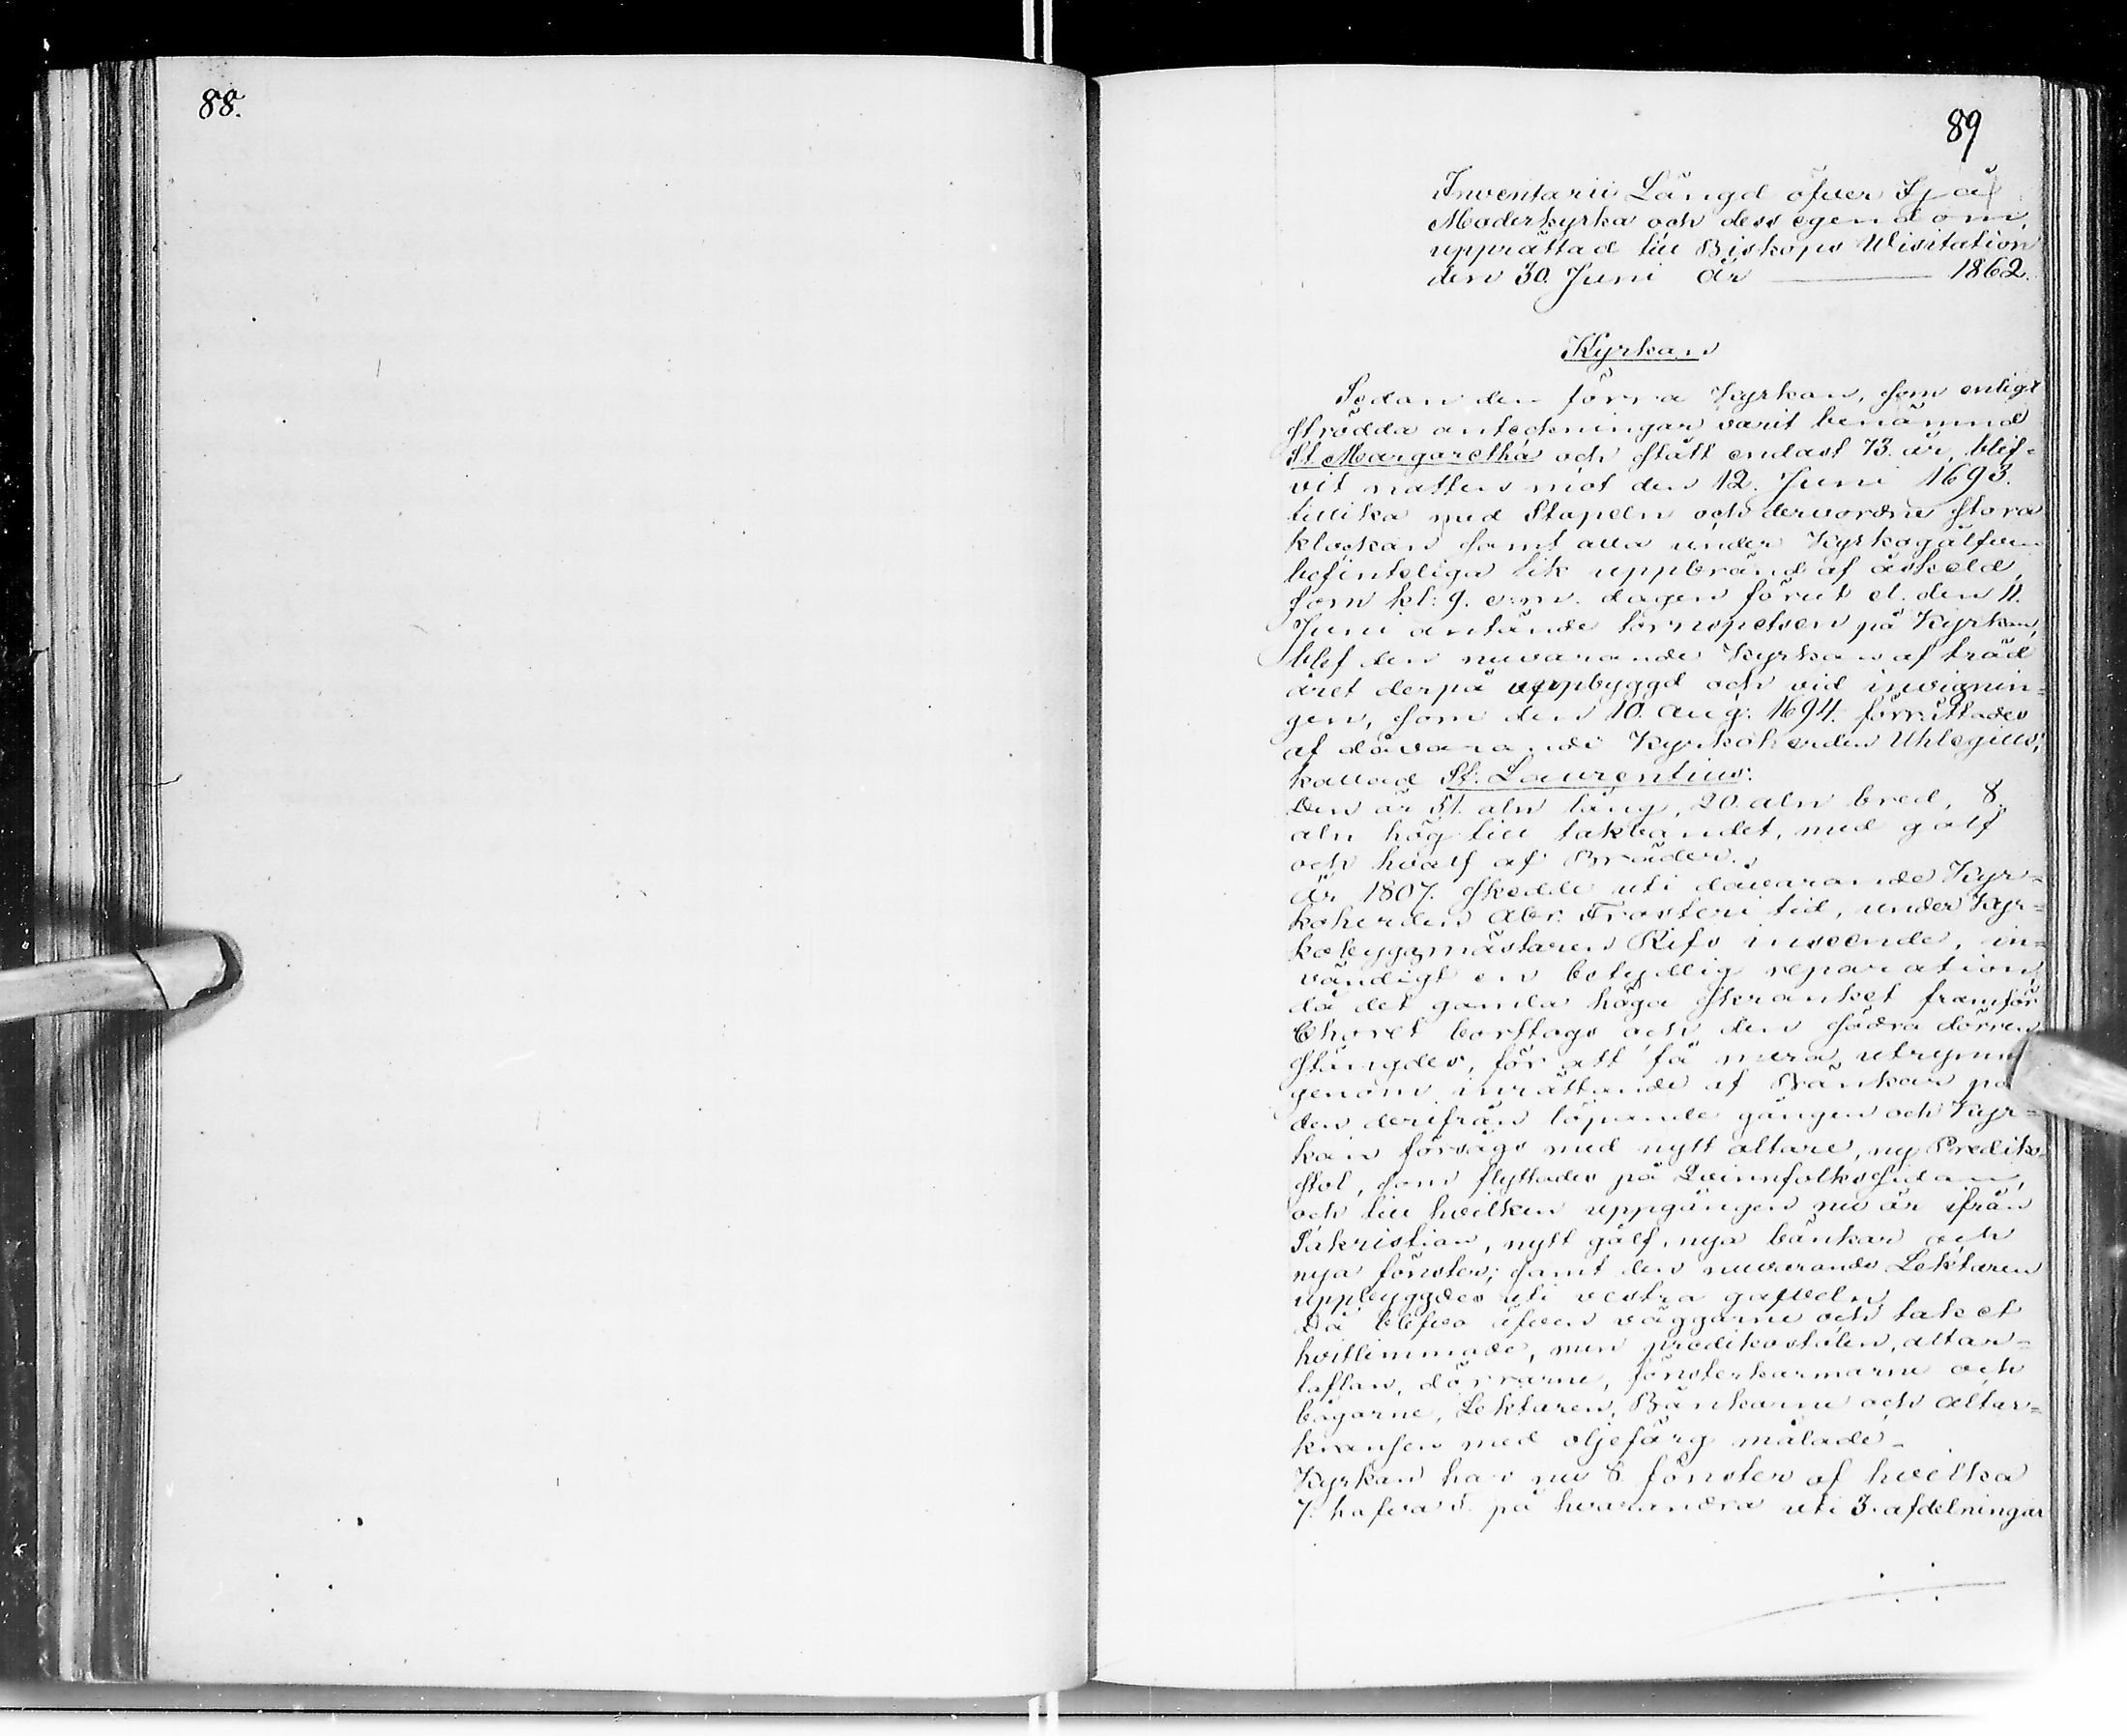 88.
89
Inventarii Längd öfver Ijå
Moderkyrka och dess egendom,
upprättad till Biskops Visitation
den 30. Juni år 1862.
Kyrkan
Sedan den förra Kyrkan, som enligt
strödda anteckningar varit benämnd
St. Margaretha och stått endast 73. år, blif-
vit natten mot den 12. Juni 1693.
tillika med Stapeln och dervarne stora
klockan samt alla under Kyrkogolfven
befinteliga lik uppbränd af åskeld,
som kl: 9. e.m. dagen förut el. den 11.
Juni antände tornspetsen på Kyrkan,
blef den nuvarande Kyrkan af träd
året derpå uppbyggd och vid invignin=
gen, som den 10. Aug: 1694. förrättades
af dåvarande Kyrkoherden Uhlegius,
kallad St: Laurentius.
Den är 51. aln lång, 20. aln bred, 8.
aln hög till takbandet, med golf
och hvalf af Bräder.
År 1807. skedde uti dåvarande Kyr=
koherden Abr. Frosteri tid, under Kyr=
kobyggmästaren Rifs inseende, in=
vändigt en betydlig reparation,
då det gamla höga skranket framför
Choret borttogs och den södra dörren
stängdes, för att få mera utrymme
genom inrättande af Bänkar på
den derifrån löpande gången och Kyr=
kan försågs med nytt altare, ny Prediko-
stol, som flyttades på Qvinnfolkssidan,
och till hvilken uppgången nu är ifrån
Sakristian, nytt golf, nya bänkar och
nya fönster; samt den nuvarande Lektaren
uppbyggdes uti vestra gafveln.
Då blefvo äfven väggarne och taket
hvitlimmade, men predikostolen, altar=
taflan, dörrarne, fönsterkarmarne och
bågarne, Lektaren, Bänkarne och altar=
kransen med oljefärg målade.
Kyrkan har nu 8. fönster af hvilka
7. hafva 5. på hvarandra uti 3. afdelningar